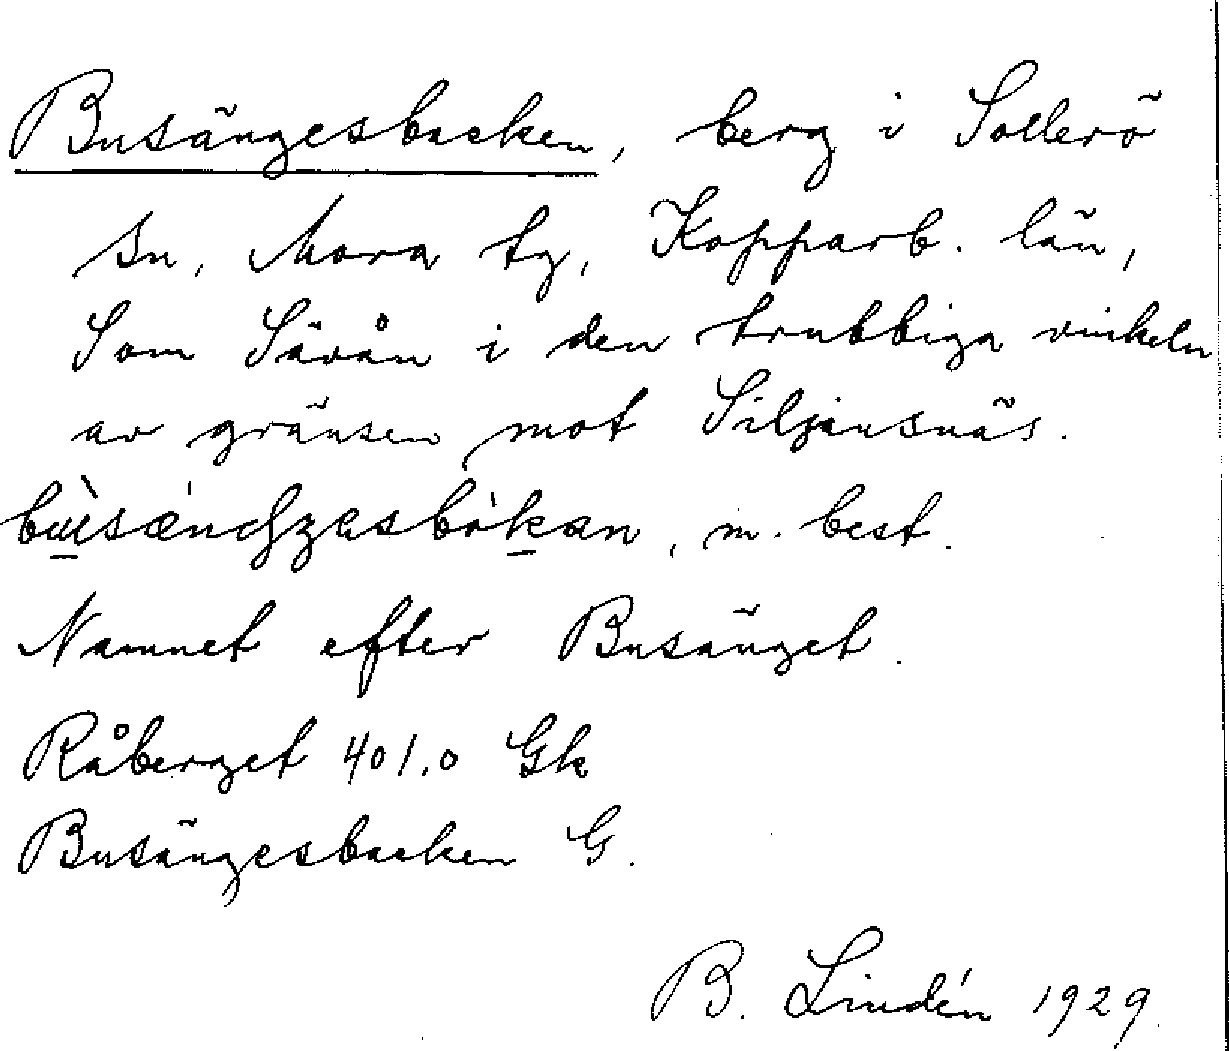 Busängesbacken, berg i Sollerö
sn, Mora tg, Kopparb. län,
Som Säván i den trubbiga vinkeln
av gränsen mot Siljansnäs.
m. best.
Namnet efter Busänget.
Råberget 401.0 Gk
Busängesbacken G.
B. Lindén 1929.